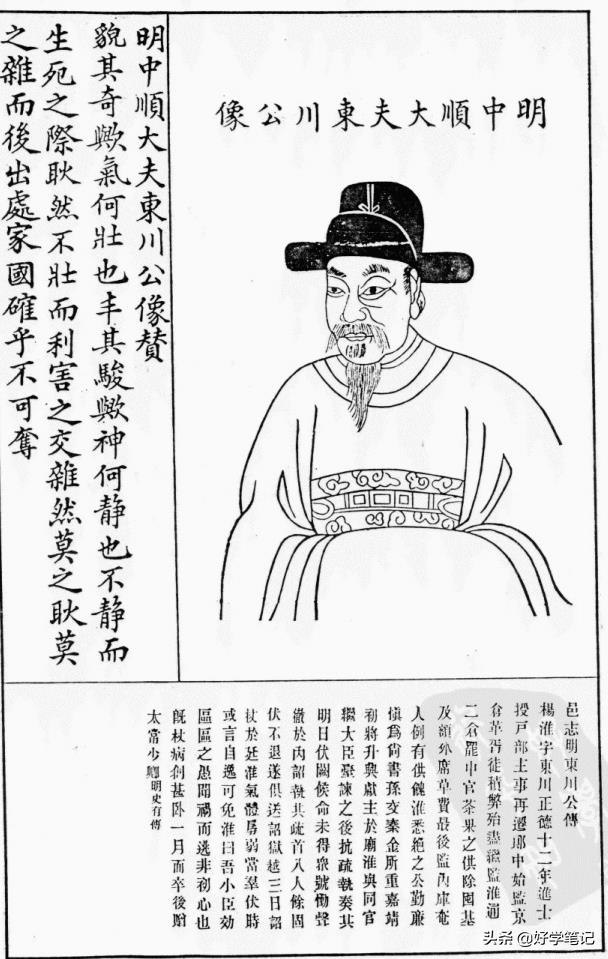 明中順大夫東川公像
明中順大夫東川公像贊
貌其奇歟氣何壯也丰其駿歟神何静也不静而
生死之際耿然不壯而利害之交雜然莫之耿莫
之雜而後出處家國確乎不可奪
邑志明東川公傳
楊淮字東川正德十二年進士
授戶部主事再遷郎中始監京
倉革胥徒積弊殆盡繼監淮通
二倉罷中官茶果之供除囤基
及額外席草費最後監內庫奄
人倒有供餽淮悉絕之公勤廉
慎爲尚書孫交秦金所重嘉靖
初將升興獻主於廟淮與同官
繼大臣臺諫之後抗疏執奏其
明日伏闕候命未得衆號慟聲
徹於內詔執其疏首八人餘固
伏不退遂俱送詔獄越三日詔
杖於廷淮氣體孱弱當羣伏時
或言自逸可免淮曰吾小臣効
區區之愚聞禍而逃非初心也
既杖病創甚卧一月而卒後贈
太常少卿明史有傳
头条 @好学笔记